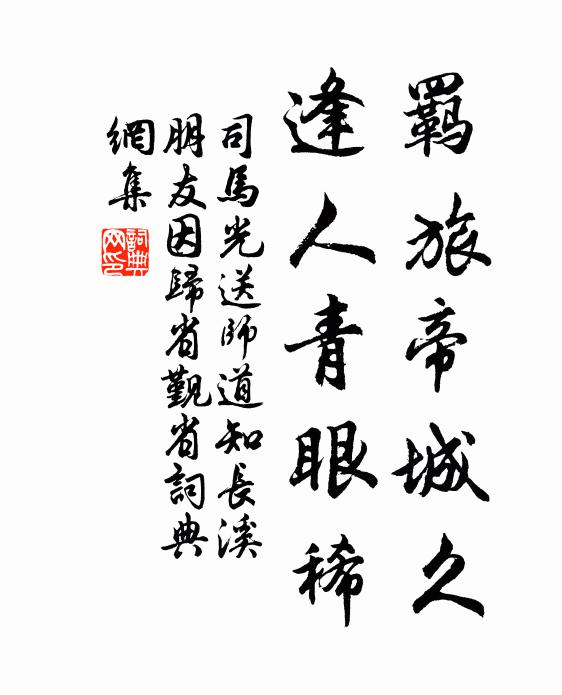 羈旅帝城久
逢人青眼稀
司馬光送師道知長溪
朋友因歸省覲省詞典
網集
詞典
网印